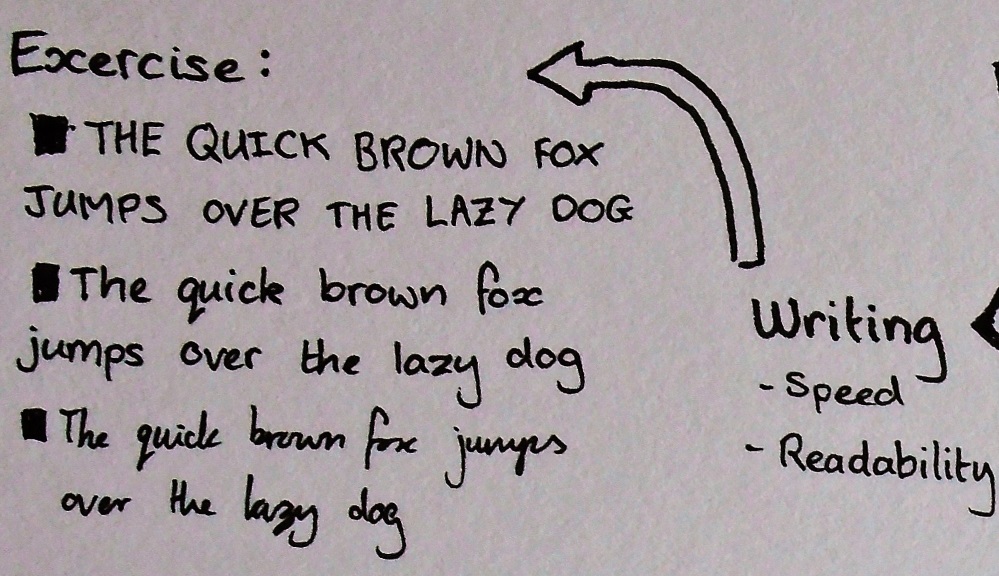 Excercise:
■ THE QUICK BROWN FOX
JUMPS OVER THE LAZY DOG
■ The quick brown fox
jumps over the lazy dog
■ The quick brown fox jumps
over the lazy dog
Writing
- Speed
- Readability